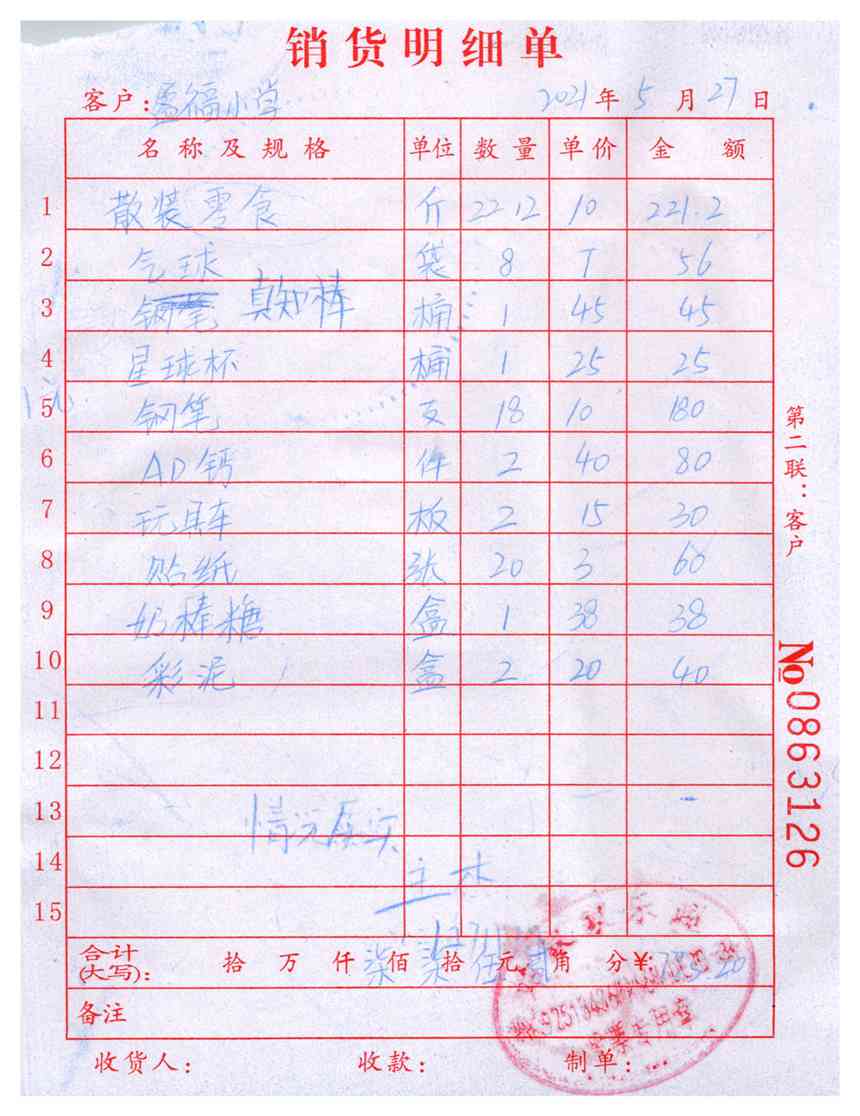 销货明细单
客户:孟福小学 2021年5月27日
名称及规格 单位 数量 单价 金额
1 散装零食 斤 22 12 10 221.2
2 气球 袋 8 7 56
3 钢笔 真知棒 桶 1 45 45
4 星球杯 桶 1 25 25
5 钢笔 支 18 10 180
6 AD钙 件 2 40 80
7 玩具车 板 2 15 30
8 贴纸 张 20 3 60
9 奶棒糖 盒 1 38 38
10 彩泥 盒 2 20 40
11
12
13 情况属实
14
15
合计(大写): 拾 万 仟 柒佰 柒拾 伍元 贰角 分¥:775.20
备注
收货人: 收款: 制单:
第二联:客户
№0863126